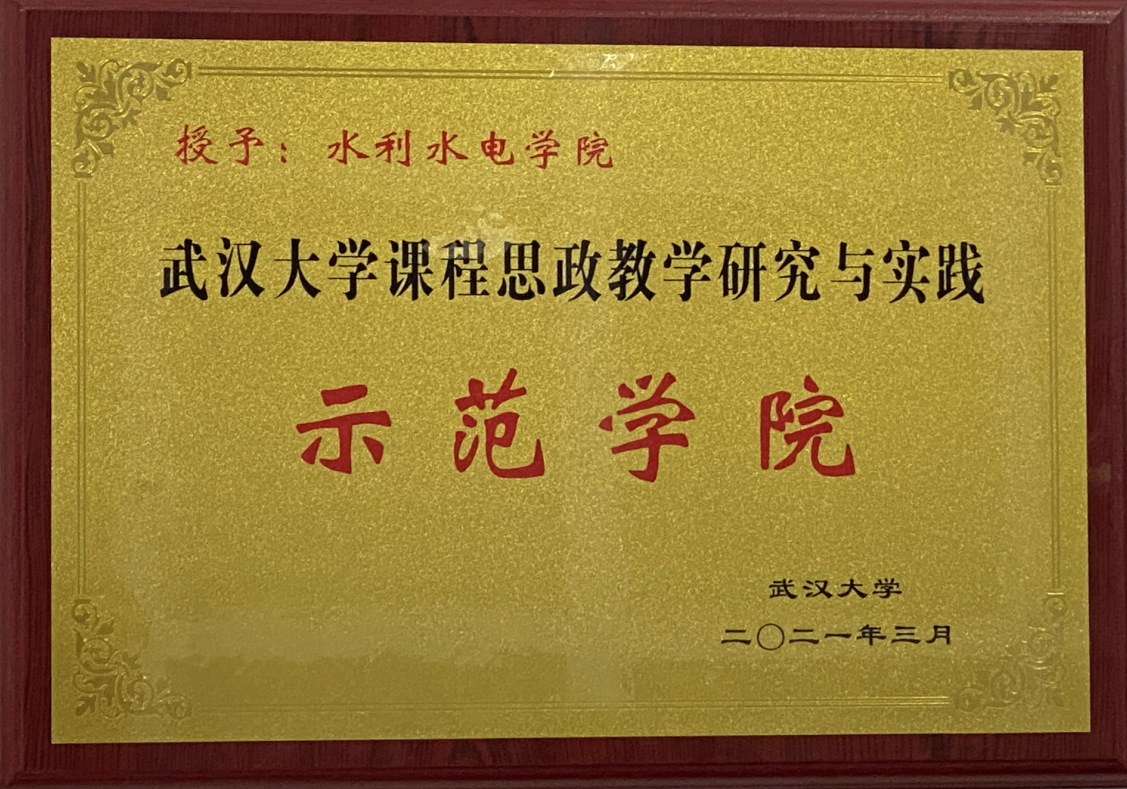 授予：水利水电学院
武汉大学课程思政教学研究与实践
示范学院
武汉大学
二〇二一年三月